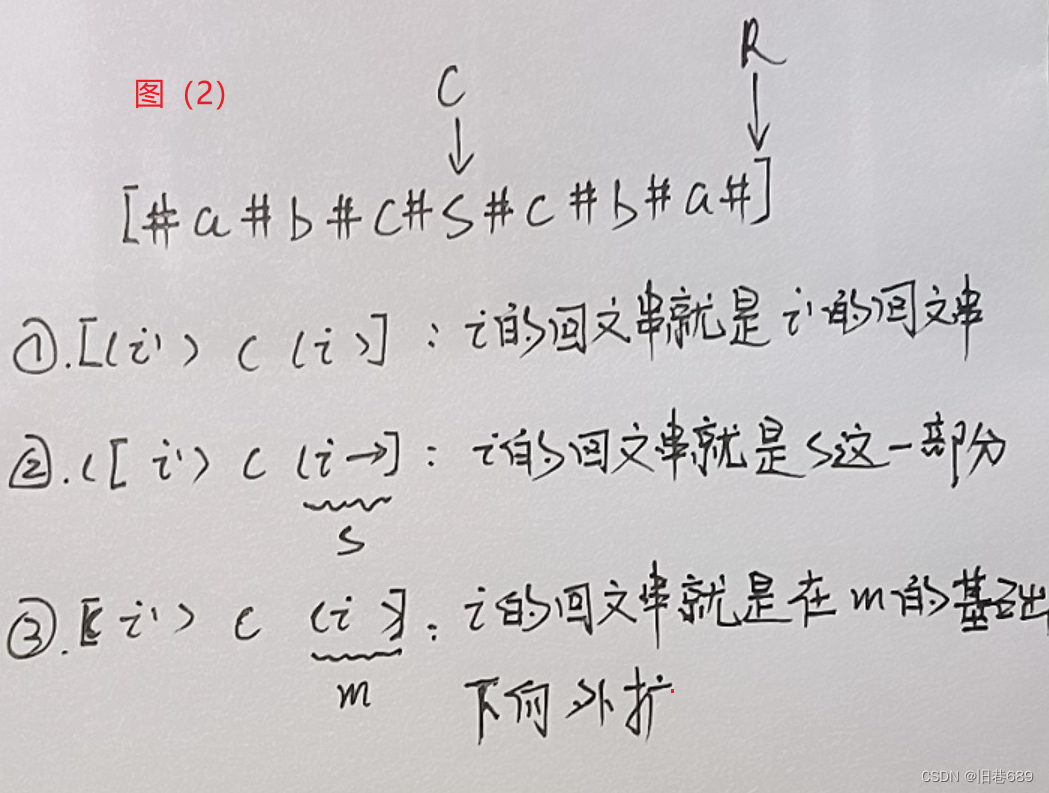 R
图（2）
C
[#a#b#c#s#c#b#a#]
①.[(i') c (i)]：i的回文串就是i'的回文串
②.([ i') c (i→]：i的回文串就是s这一部分
s
③.[( i') c (i)]：i的回文串就是在m的基础
m
下向外扩
CSDN @旧巷689